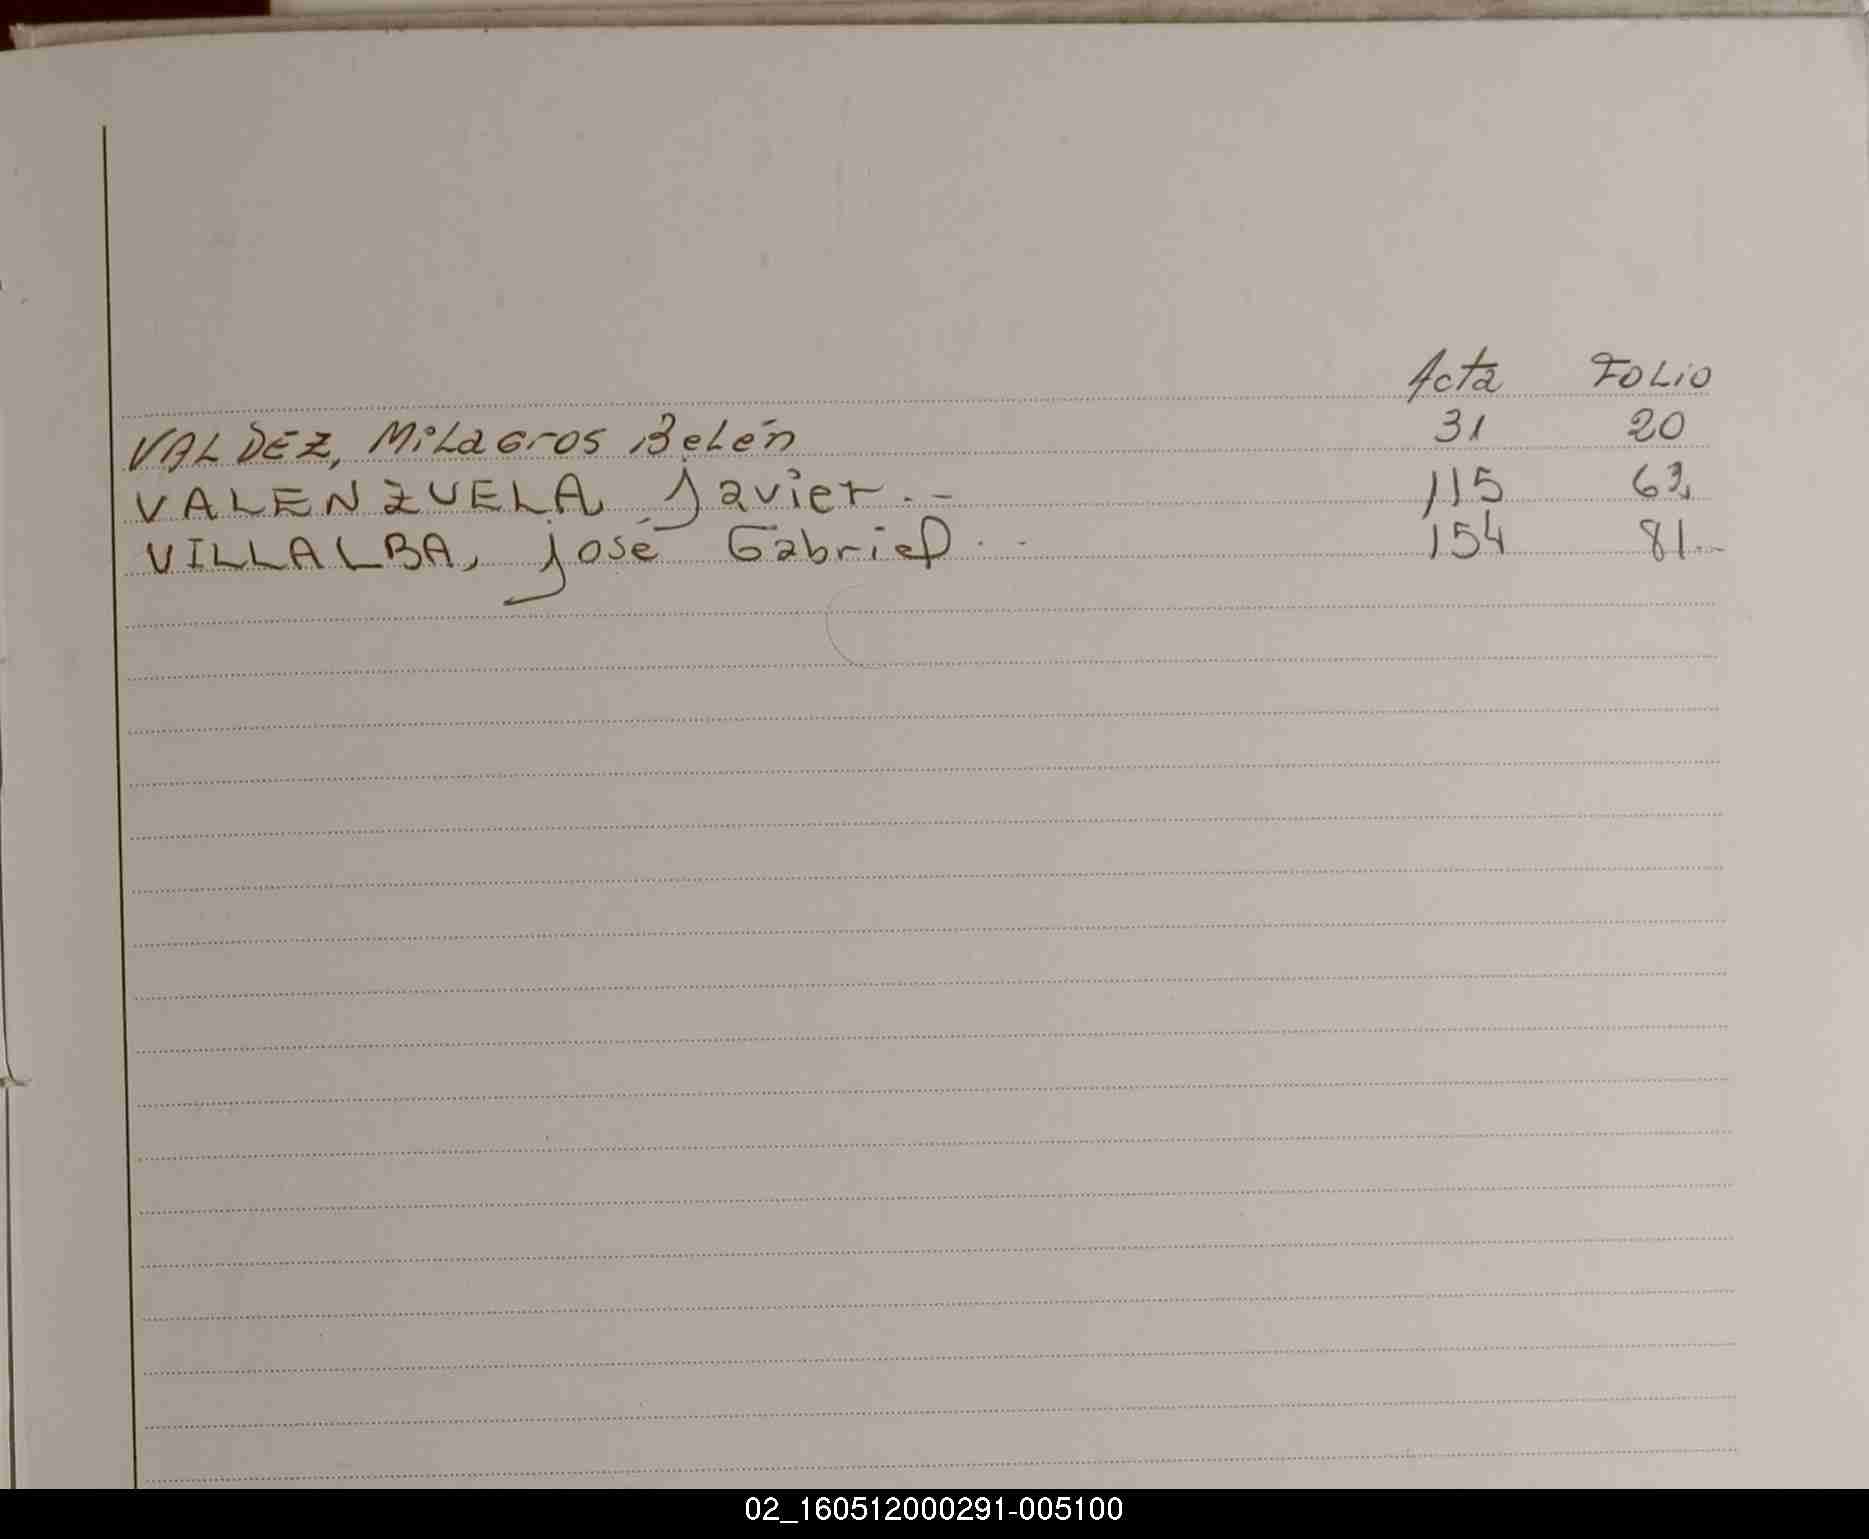 Acta Folio
VALDEZ, Milagros Belén 31 20
VALENZUELA, Javier.- 115 63
VILLALBA, José Gabriel.- 154 81.-
02_160512000291-005100